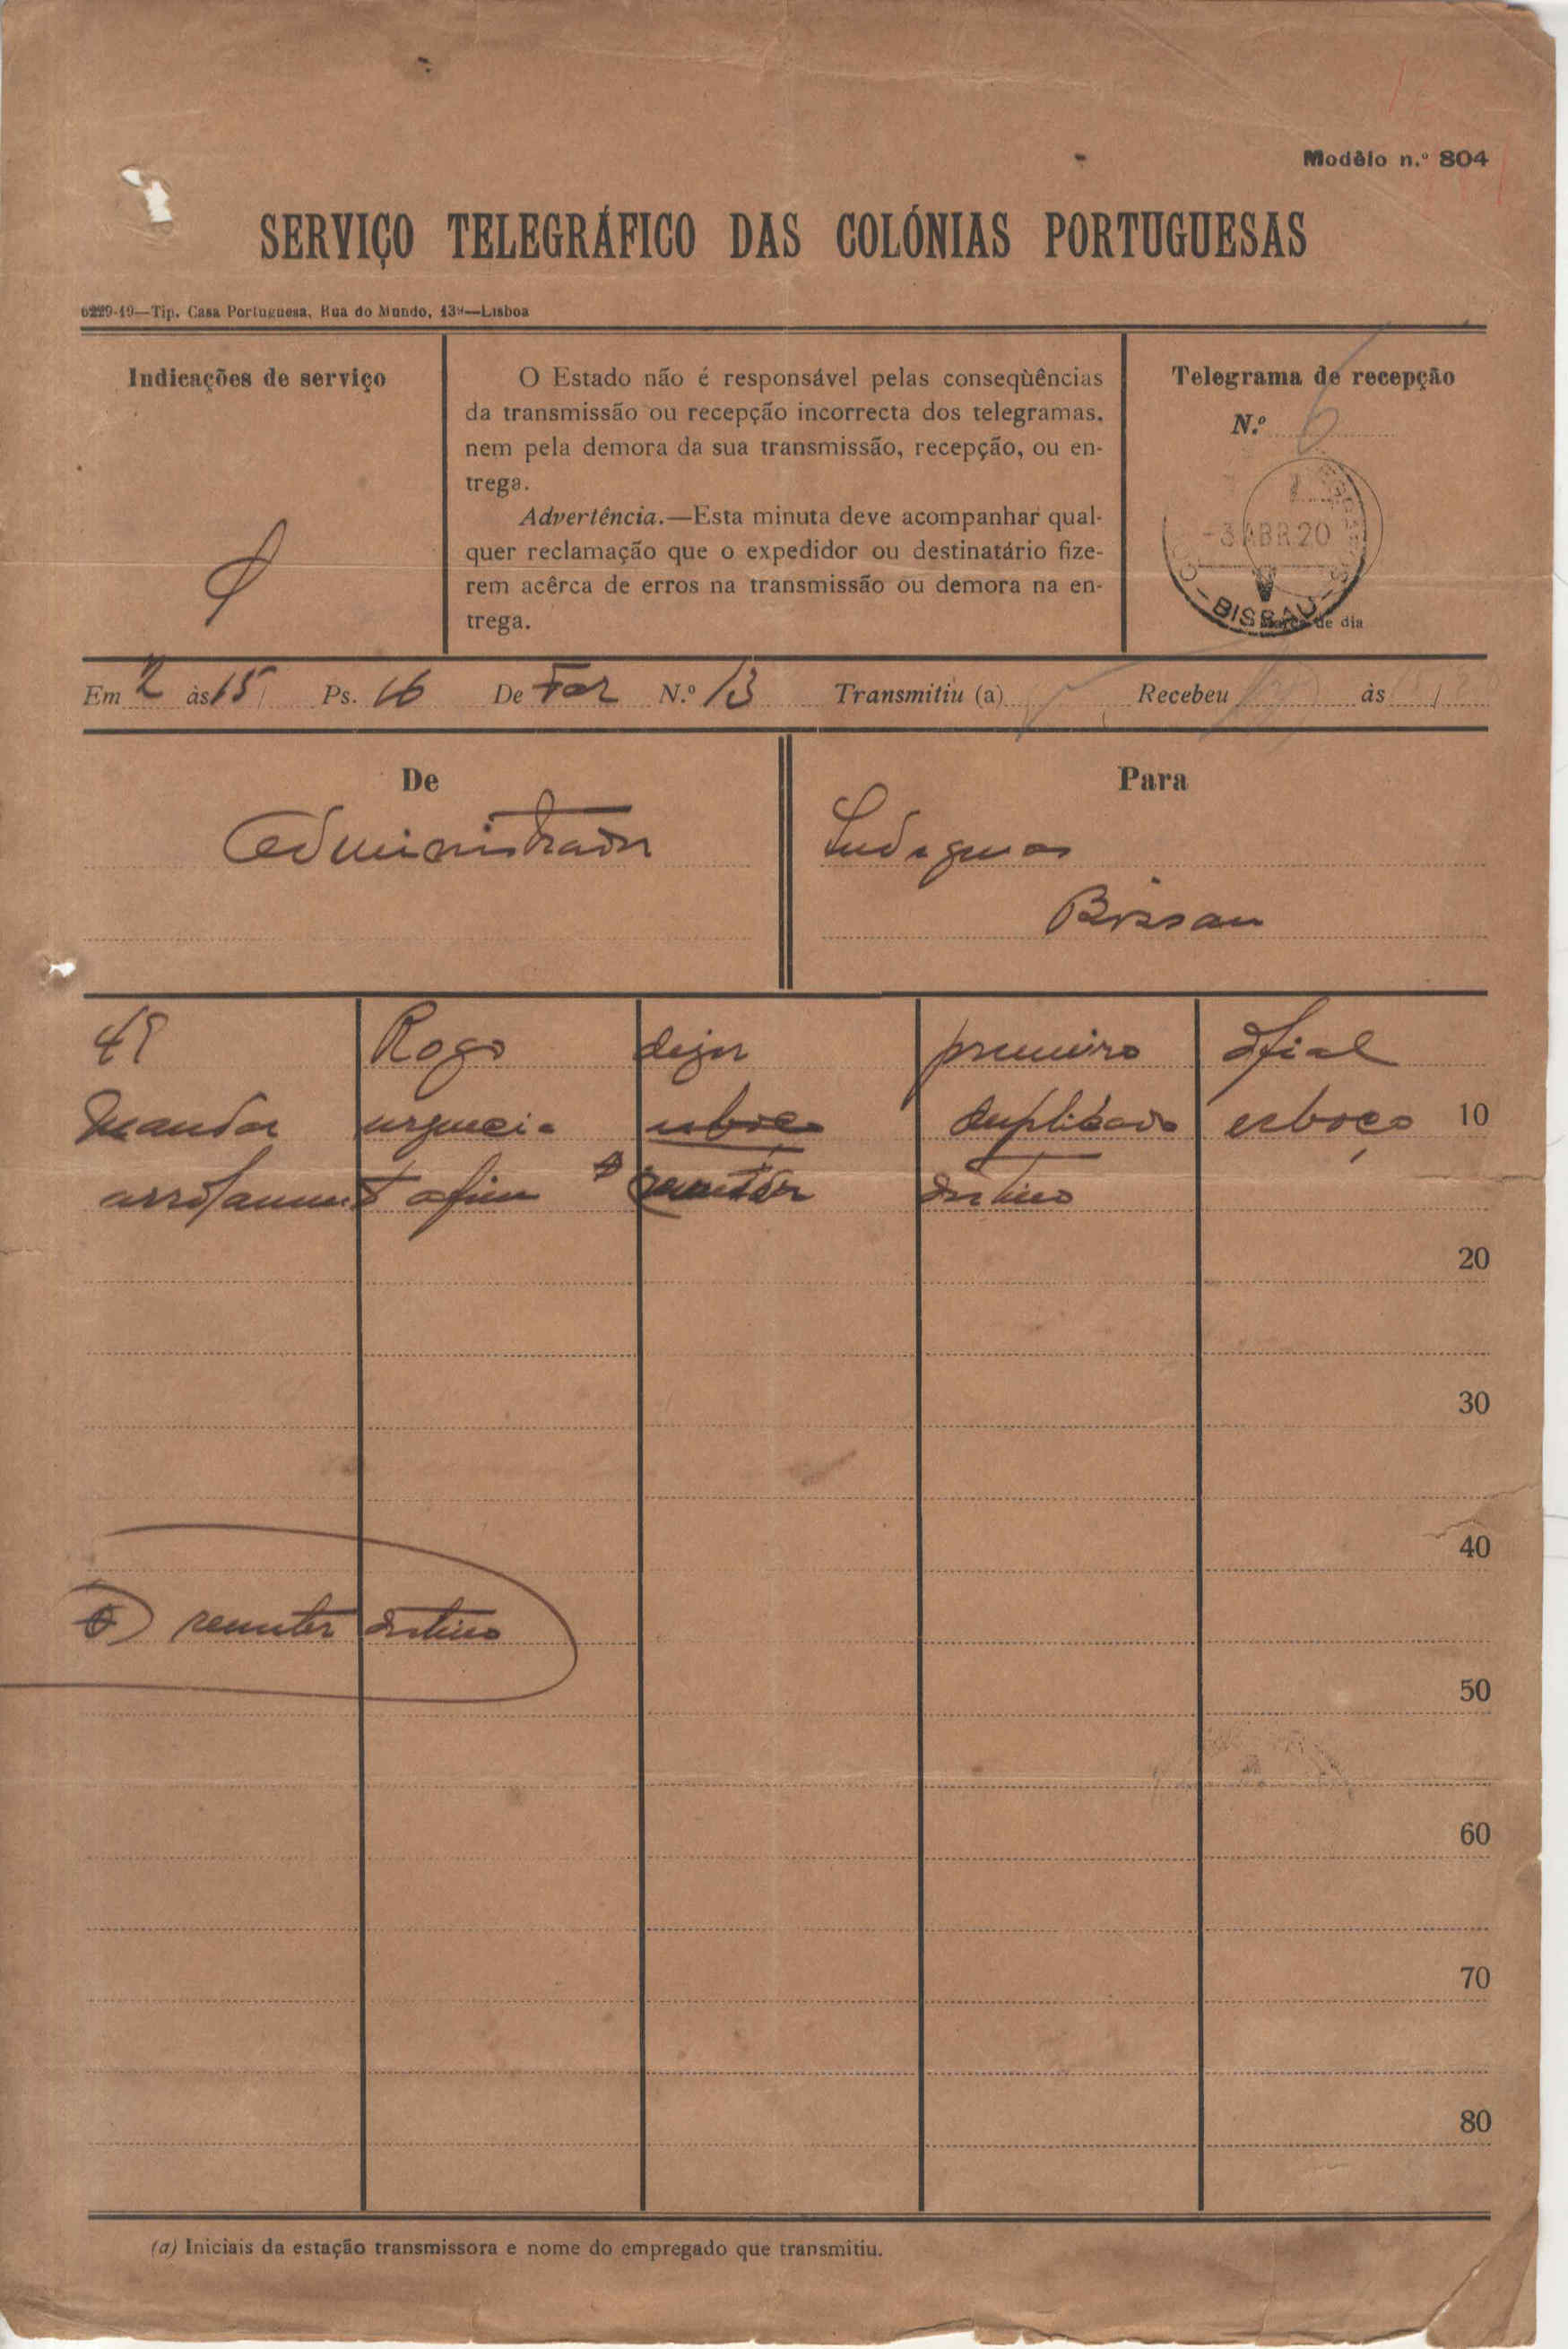 Modêlo n.º 804
SERVIÇO TELEGRÁFICO DAS COLÓNIAS PORTUGUESAS
6229-19—Tip. Casa Portuguesa, Rua do Mundo, 139—Lisboa
Indicações de serviço
O Estado não é responsável pelas conseqùências
da transmissão ou recepção incorrecta dos telegramas,
nem pela demora da sua transmissão, recepção, ou en-
trega.
Advertência.—Esta minuta deve acompanhar qual-
quer reclamação que o expedidor ou destinatário fize-
rem acêrca de erros na transmissão ou demora na en-
trega.
Telegrama de recepção
N.º 6
-3 ABR 20
BISSAU
de dia
Em 2 às 15 Ps. 16 De Far N.º 13 Transmitiu (a) Recebeu às
De
Administrador
Para
Indigenas
Bissau
Rogo primeiro ofial
mandar urgencia esboço duplicado esboço 10
arrolament afim remeter destino
20
30
40
remeter destino
50
60
70
80
(a) Iniciais da estação transmissora e nome do empregado que transmitiu.